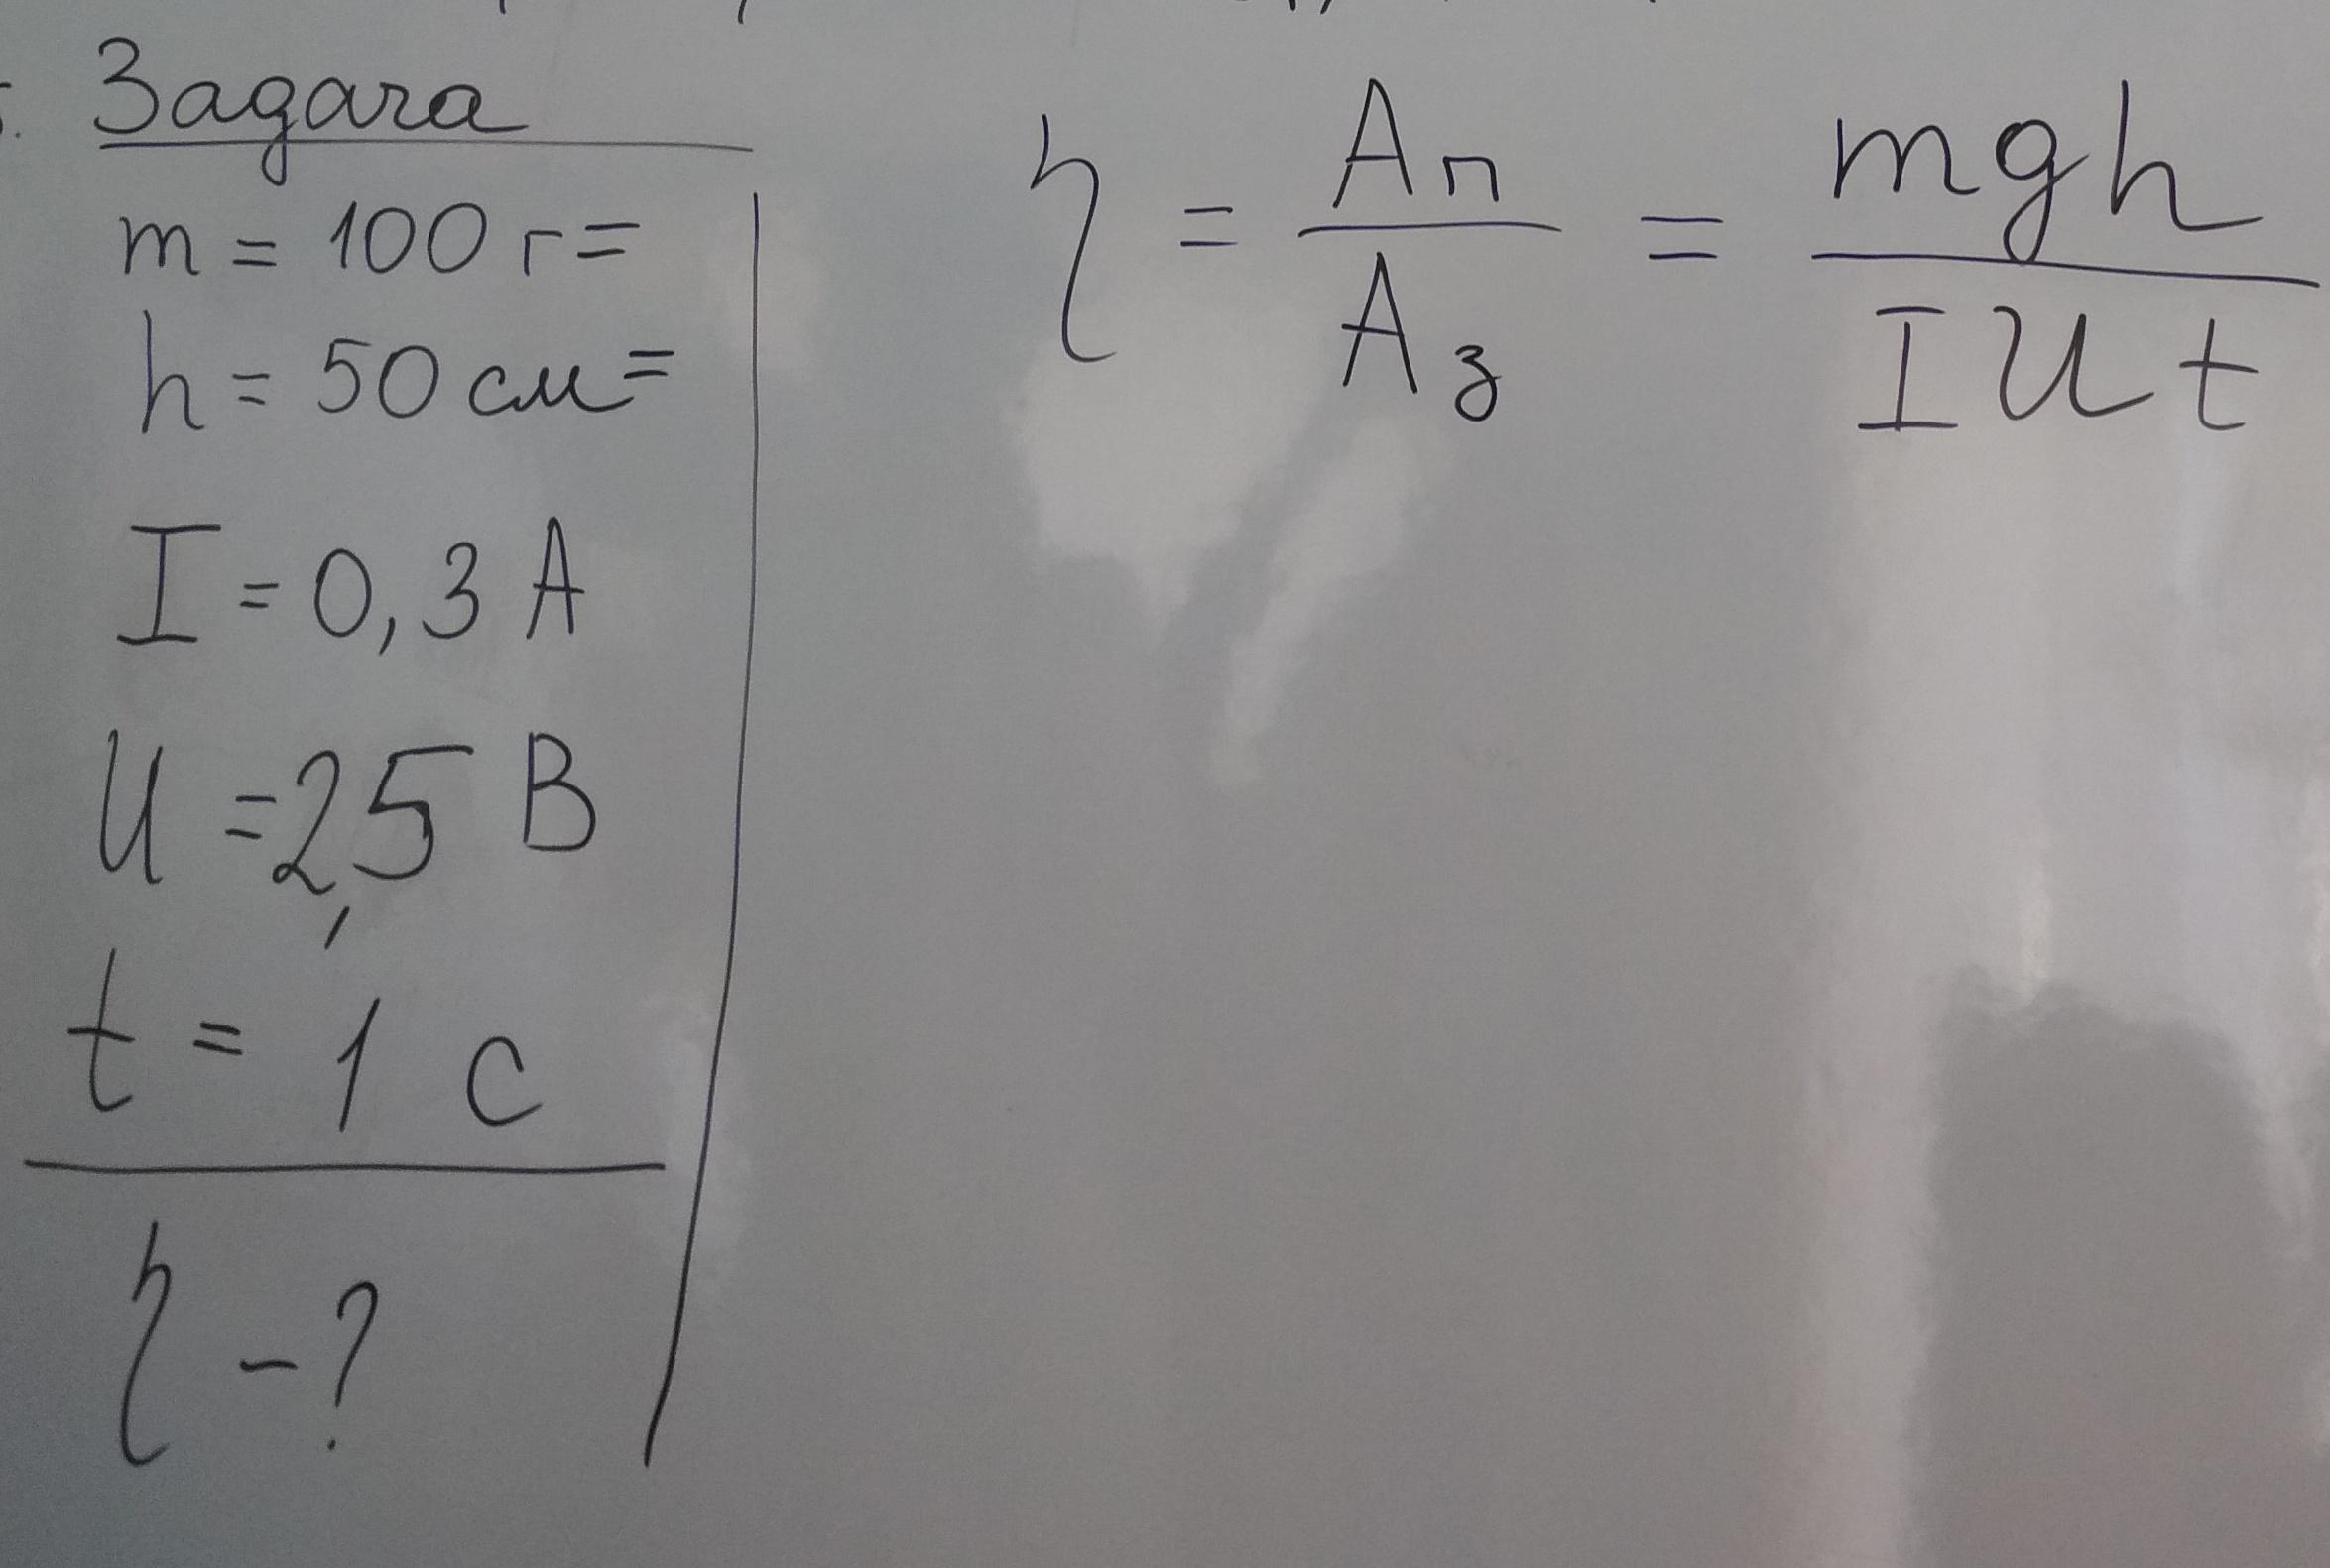 Задача
m = 100 г =
h = 50 см =
I = 0,3 А
U = 2,5 В
t = 1 с
η - ?
η = Aп / Aз = mgh / IUt